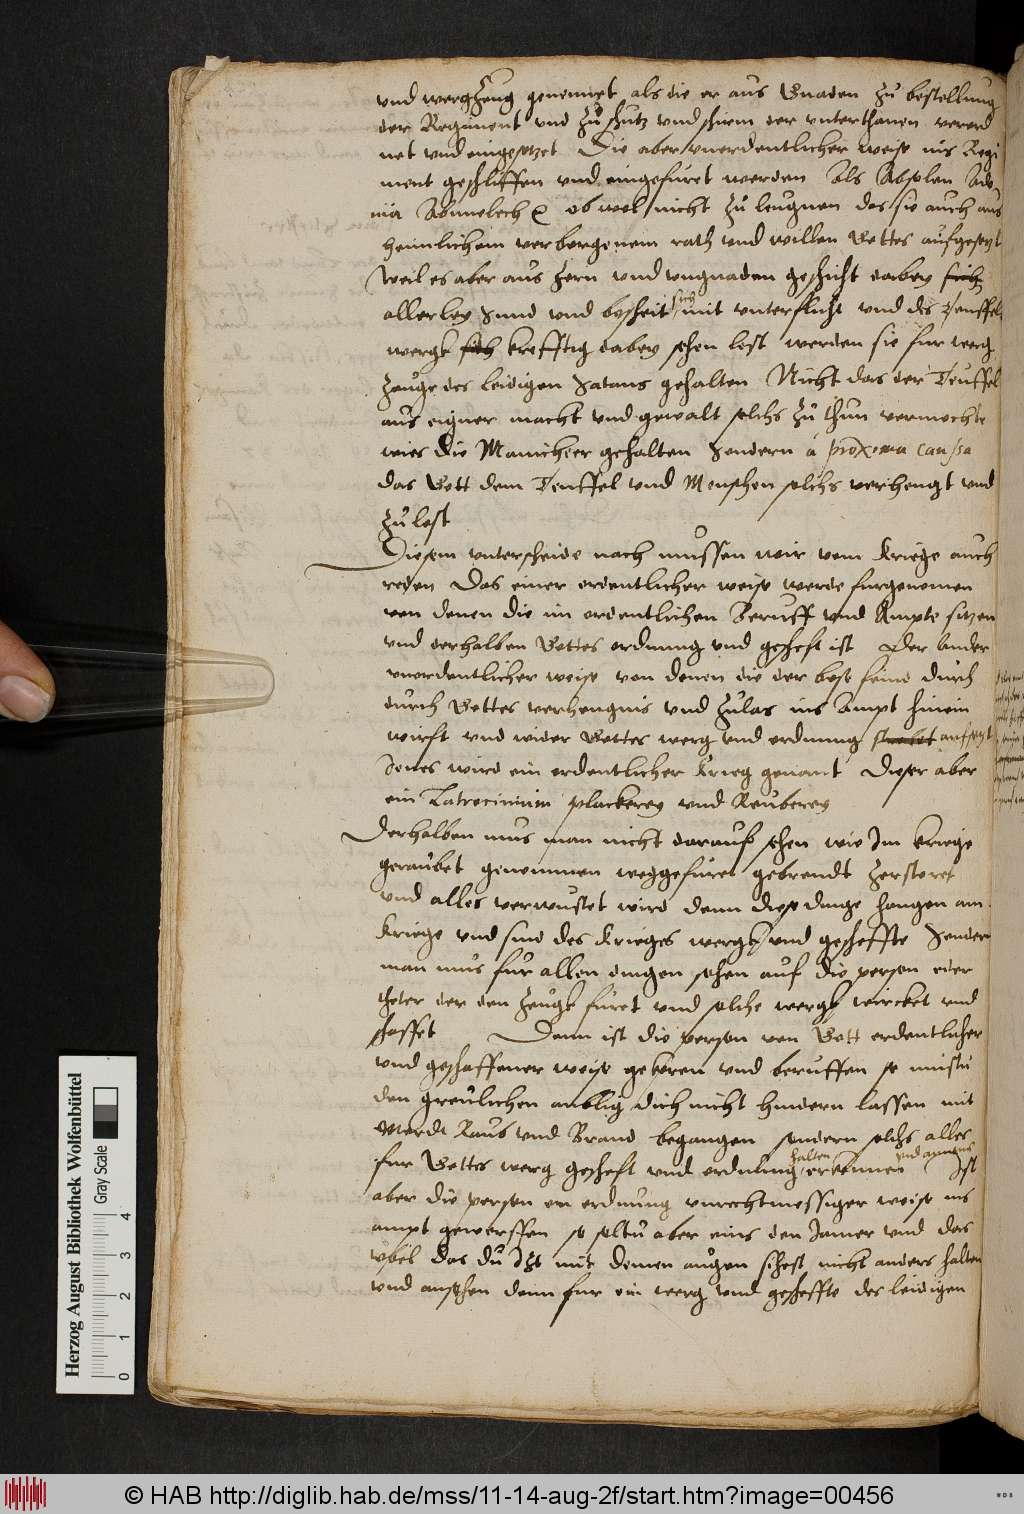 vnd wergzeug genennet als die er aus Gnaden zu bestellung
der Regiment vnd zu schutz vnd schirm der vnterthanen verord
net vnd eingesetzet Die aber vnordentlicher weise ins Regi
ment geschliffen vnd eingefuret werden Als Absolon Ado
nia Abimelech ob wol nicht zu leugnen das sie auch aus
heimlichem verborgenem rath vnd willen Gottes aufgesetzt
Weil es aber aus zorn vnd vngnaden geschicht dabey sich
allerley Sund vnd bosheit sich mit vnterflicht vnd des Teuffels
wergk sich krefftig dabey sehen lest werden sie fur werg
zeuge des leidigen Satans gehalten Nicht das der Teuffel
aus eigner macht vnd gewalt solchs zu thun vermochte
wies die Manicheer gehalten Sondern à proxima caussa
das Gott dem Teuffel vnd Menschen solchs verhengt vnd
zulest
Diesem vnterscheide nach mussen wir vom Kriege auch
reden Das einer ordentlicher weise werde furgenomen
von denen die im ordentlichen Beruff vnd Ampte sitzen
vnd derhalben Gottes ordnung vnd gescheft ist Der Ander
vnordentlicher weise von denen die der bose feind durch
durch Gottes verhengnis vnd zulas ins Ampt hinein
wirft vnd wider Gottes werg vnd ordnung aufsetzt
Jenes wird ein ordentlicher Krieg genant Dieser aber
ein Latrocinium plackerey vnd Reuberey
Derhalben mus man nicht darauf sehen wie Im kriege
geraubet genommen weggefuret gebrendt zerstoret
vnd alles verwustet wird denn diese dinge hangen am
Kriege vnd sind des Krieges wergk vnd gescheffte Sondern
man mus fur allen dingen sehen auf die person oder
theter der den zeugk furet vnd solche wergk wircket vnd
schaffet Denn ist die person von Gott ordentlicher
vnd geschaffener weise gekoren vnd beruffen so mustu
den greulichen anblig dich nicht hindern lassen mit
Mordt Raub vnd Brand begangen sondern solchs alles
fur Gottes werg gescheft vnd ordnung halten erkennen vnd Ist
aber die person on ordnung vnrechtmessiger weise ins
ampt geworffen so soltu aber eins den Jamer vnd das
vbel das du Itzt mit deinen augen sihest nicht anders halten
vnd ansehen denn fur ein werg vnd gescheffte des leidigen
Herzog August Bibliothek Wolfenbüttel
Gray Scale
0 1 2 3 4
© HAB http://diglib.hab.de/mss/11-14-aug-2f/start.htm?image=00456